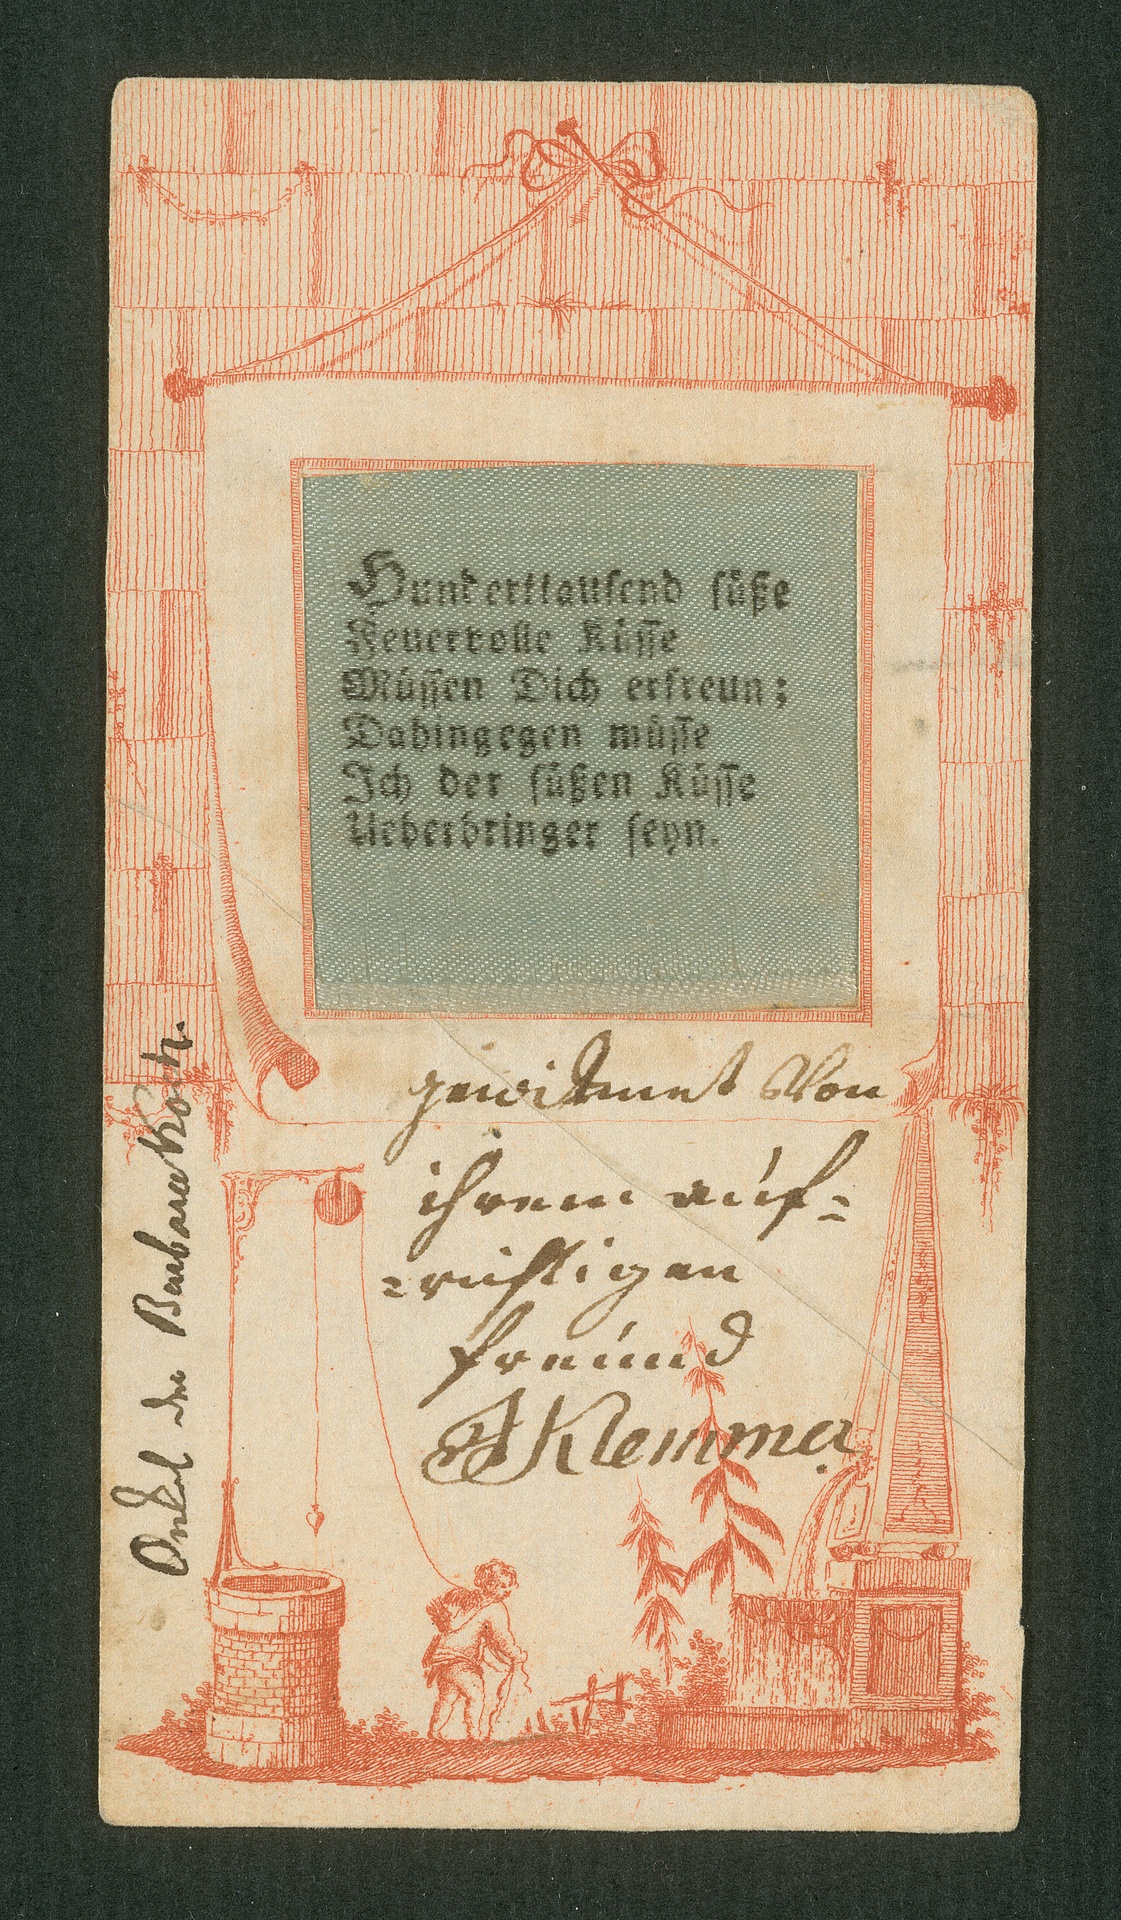 Hunderttausend süße
Feuervolle Küsse
Müssen Dich erfreun;
Dahingegen müsse
Ich der süßen Küsse
Ueberbringer seyn.
gewidmet Von
ihrem auf=
=richtigen
freund
J Klemmer
Onkel der Barbara Koch.